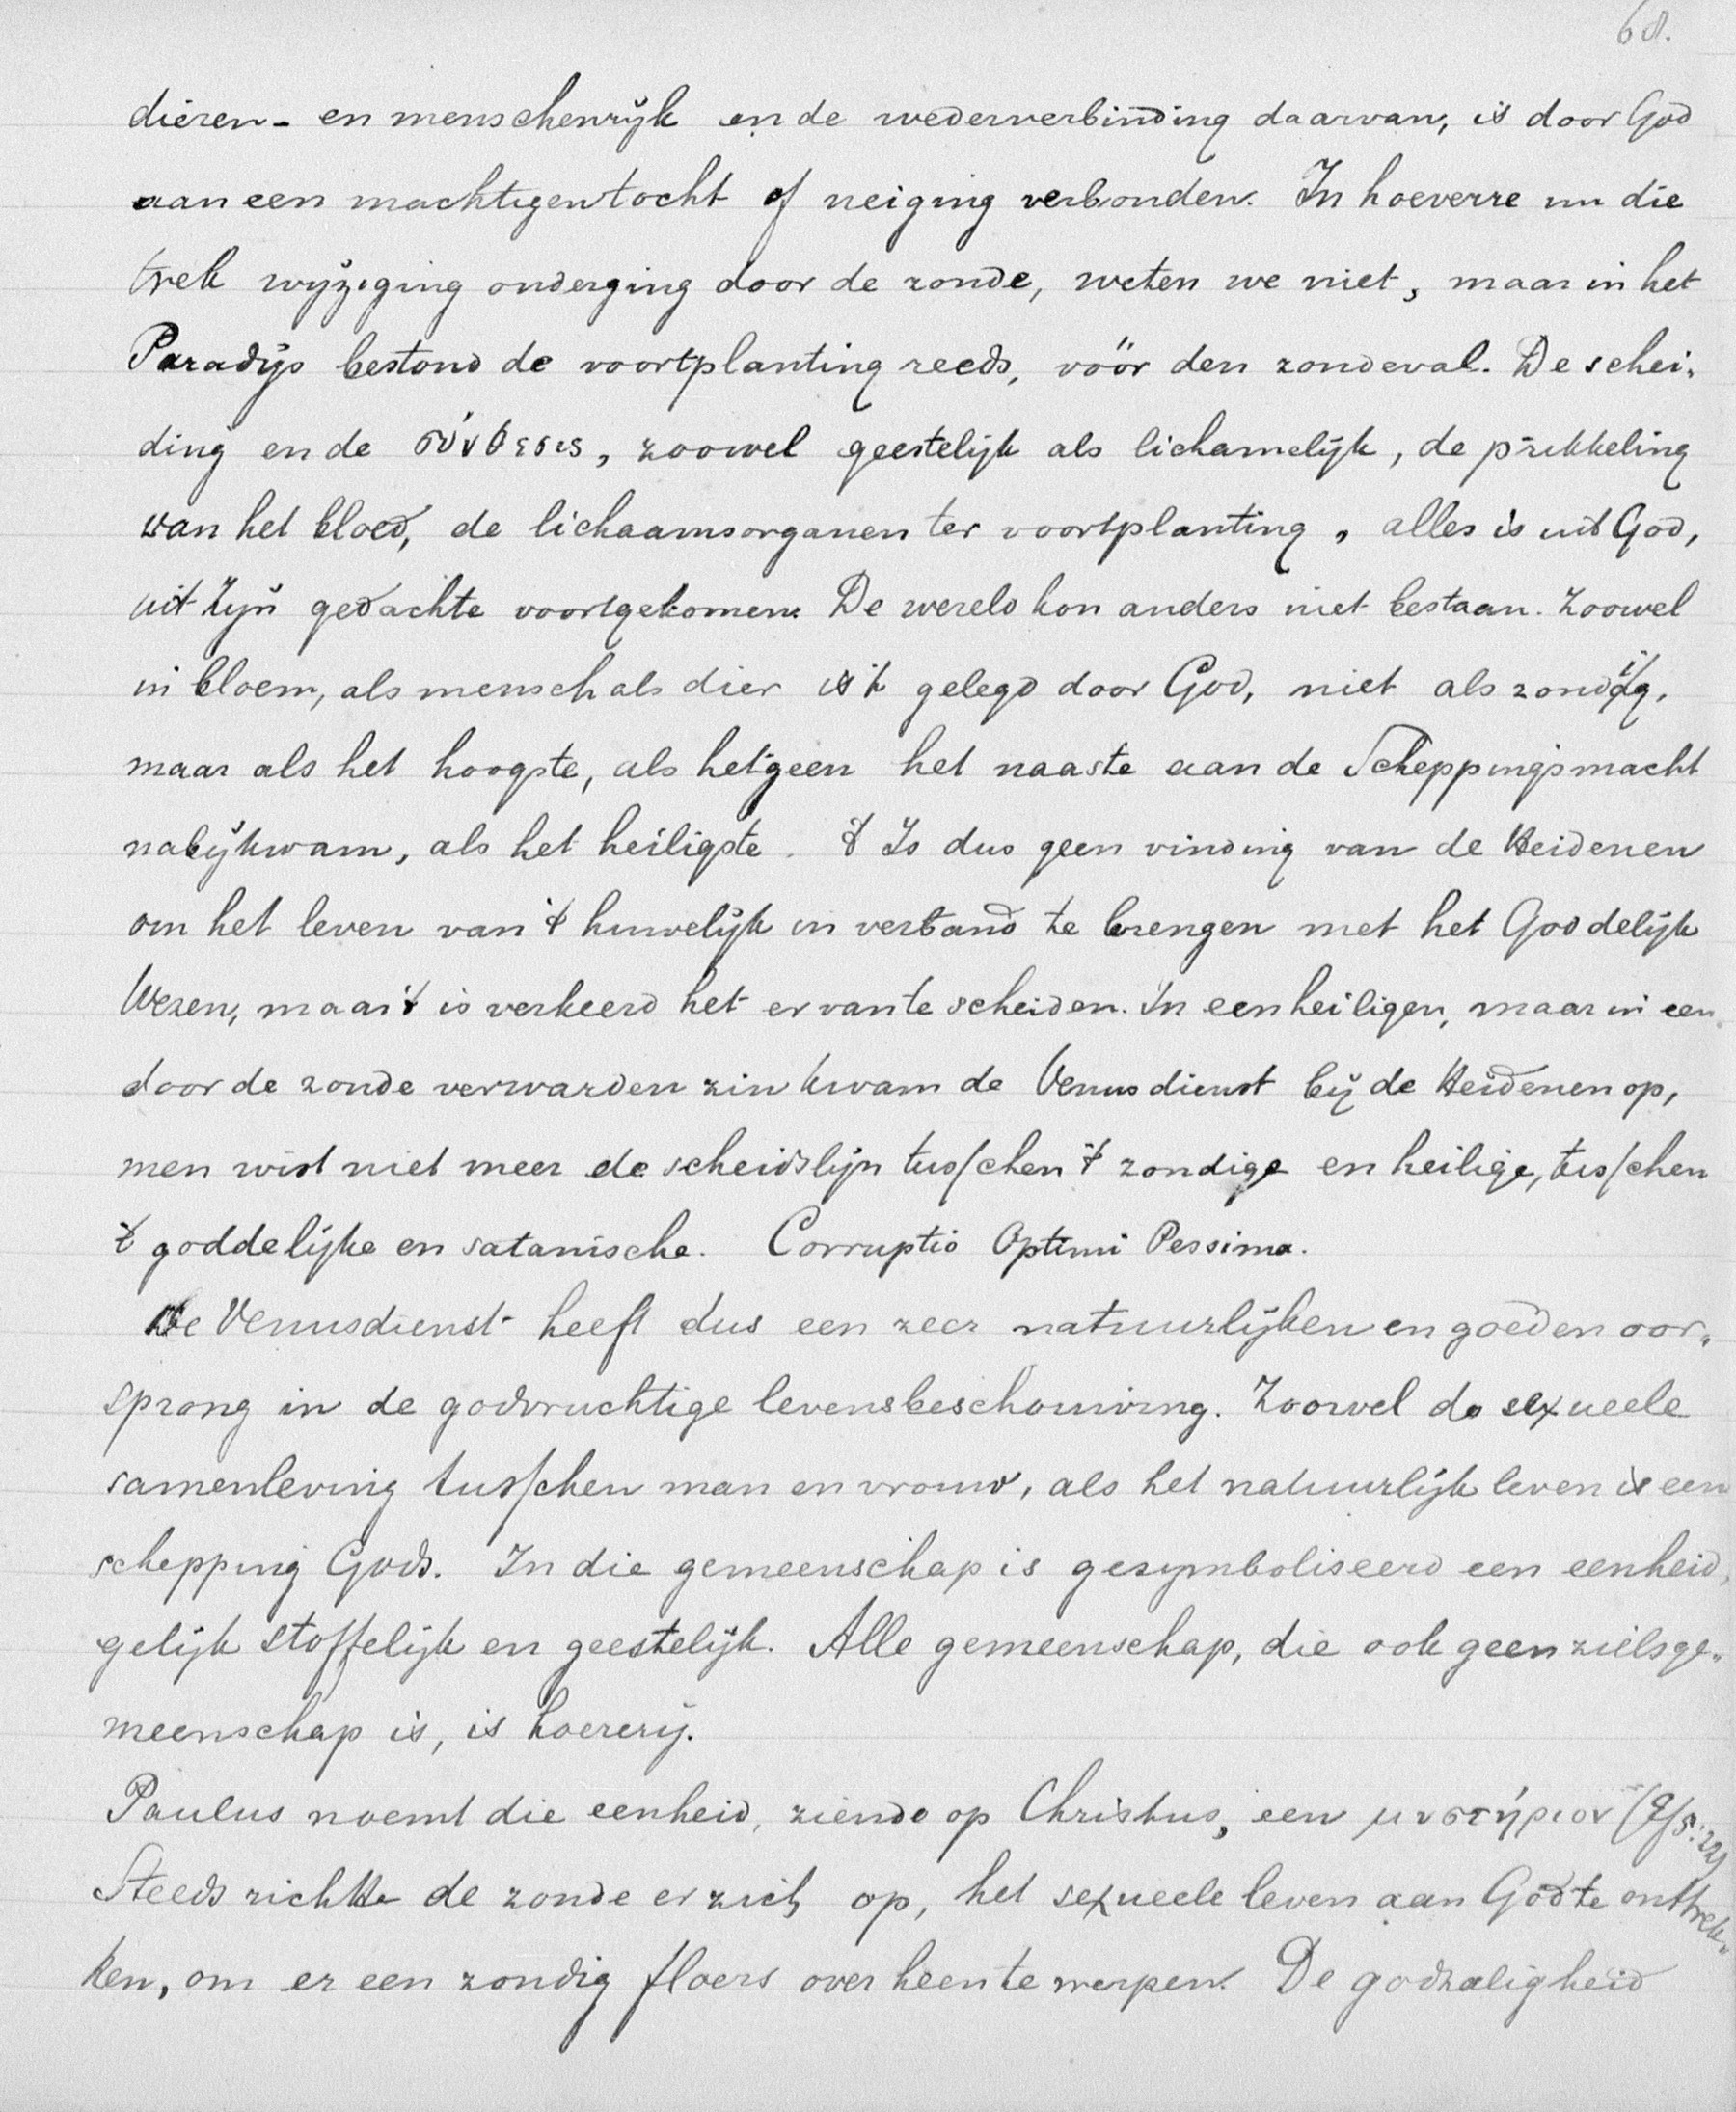 68.
dieren- en menschenrijk en de wederverbinding daarvan, is door God
aan een machtigen tocht of neiging verbonden. In hoeverre nu die
trek wijziging onderging door de zonde, weten we niet, maar in het
Paradijs bestond de voortplanting reeds, vóór den zondeval. De schei-
ding en de σύνθεσις, zoowel geestelijk als lichamelijk, de prikkeling
van het bloed, de lichaamsorganen ter voortplanting, alles is uit God,
uit Zijn gedachte voortgekomen. De wereld kon anders niet bestaan. Zoowel
in bloem, als mensch als dier is 't gelegd door God, niet als zondig,
maar als het hoogste, als hetgeen het naaste aan de Scheppingsmacht
nabijkwam, als het heiligste. 't Is dus geen vinding van de Heidenen
om het leven van 't huwelijk in verband te brengen met het Goddelijk
Wezen, maar 't is verkeerd het er van te scheiden. In een heiligen, maar in een
door de zonde verwarden zin kwam de Venusdienst bij de Heidenen op,
men wist niet meer de scheidslijn tusschen 't zondige en heilige, tusschen
't goddelijke en satanische. Corruptio Optimi Pessima.
De Venusdienst heeft dus een zeer natuurlijken en goeden oor-
sprong in de godvruchtige levensbeschouwing. Zoowel de sexueele
samenleving tusschen man en vrouw, als het natuurlijk leven is een
schepping Gods. In die gemeenschap is gesymboliseerd een eenheid,
gelijk stoffelijk en geestelijk. Alle gemeenschap, die ook geen zielsge-
meenschap is, is hoererij.
Paulus noemt die eenheid, ziende op Christus, een μυστήριον (Ef 5:22)
Steeds richtte de zonde er zich op, het sexueele leven aan God te onttrek-
ken, om er een zondig floers over heen te werpen. De godzaligheid